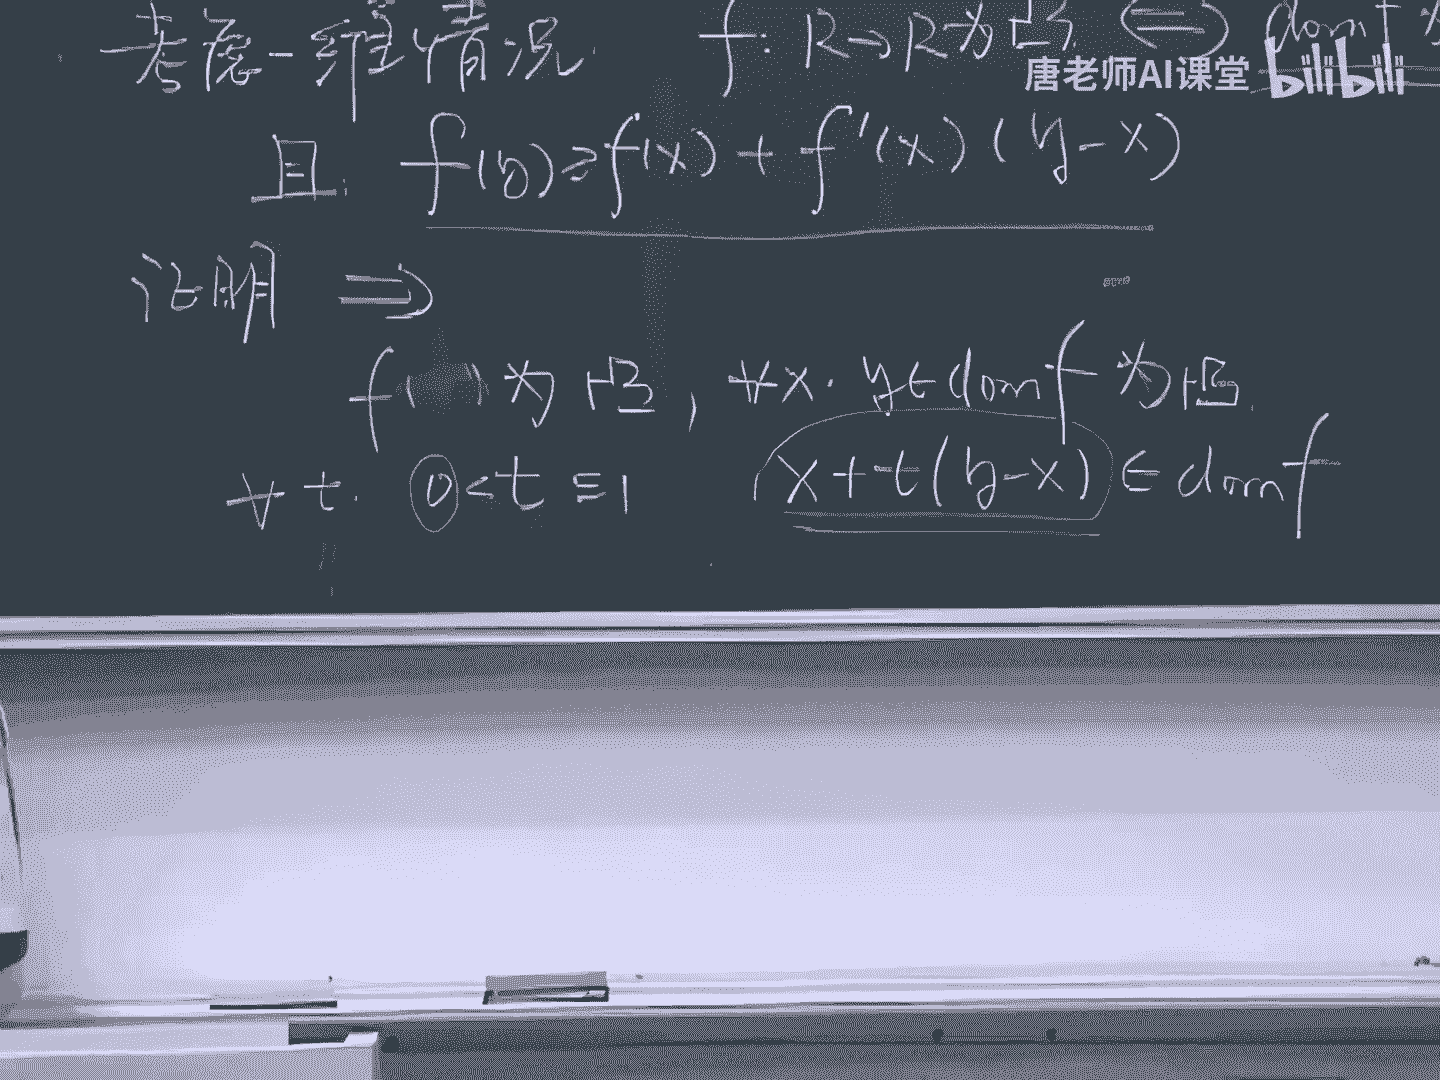 考虑一维情况 f: R→R为凸 ⟺ dom f 为
唐老师AI课堂 bilibili
且. f(y)≥f(x)+f'(x)(y-x)
证明 ⇒
f 为凸, ∀x. y∈dom f 为凸.
∀t. 0<t≤1 x+t(y-x)∈dom f